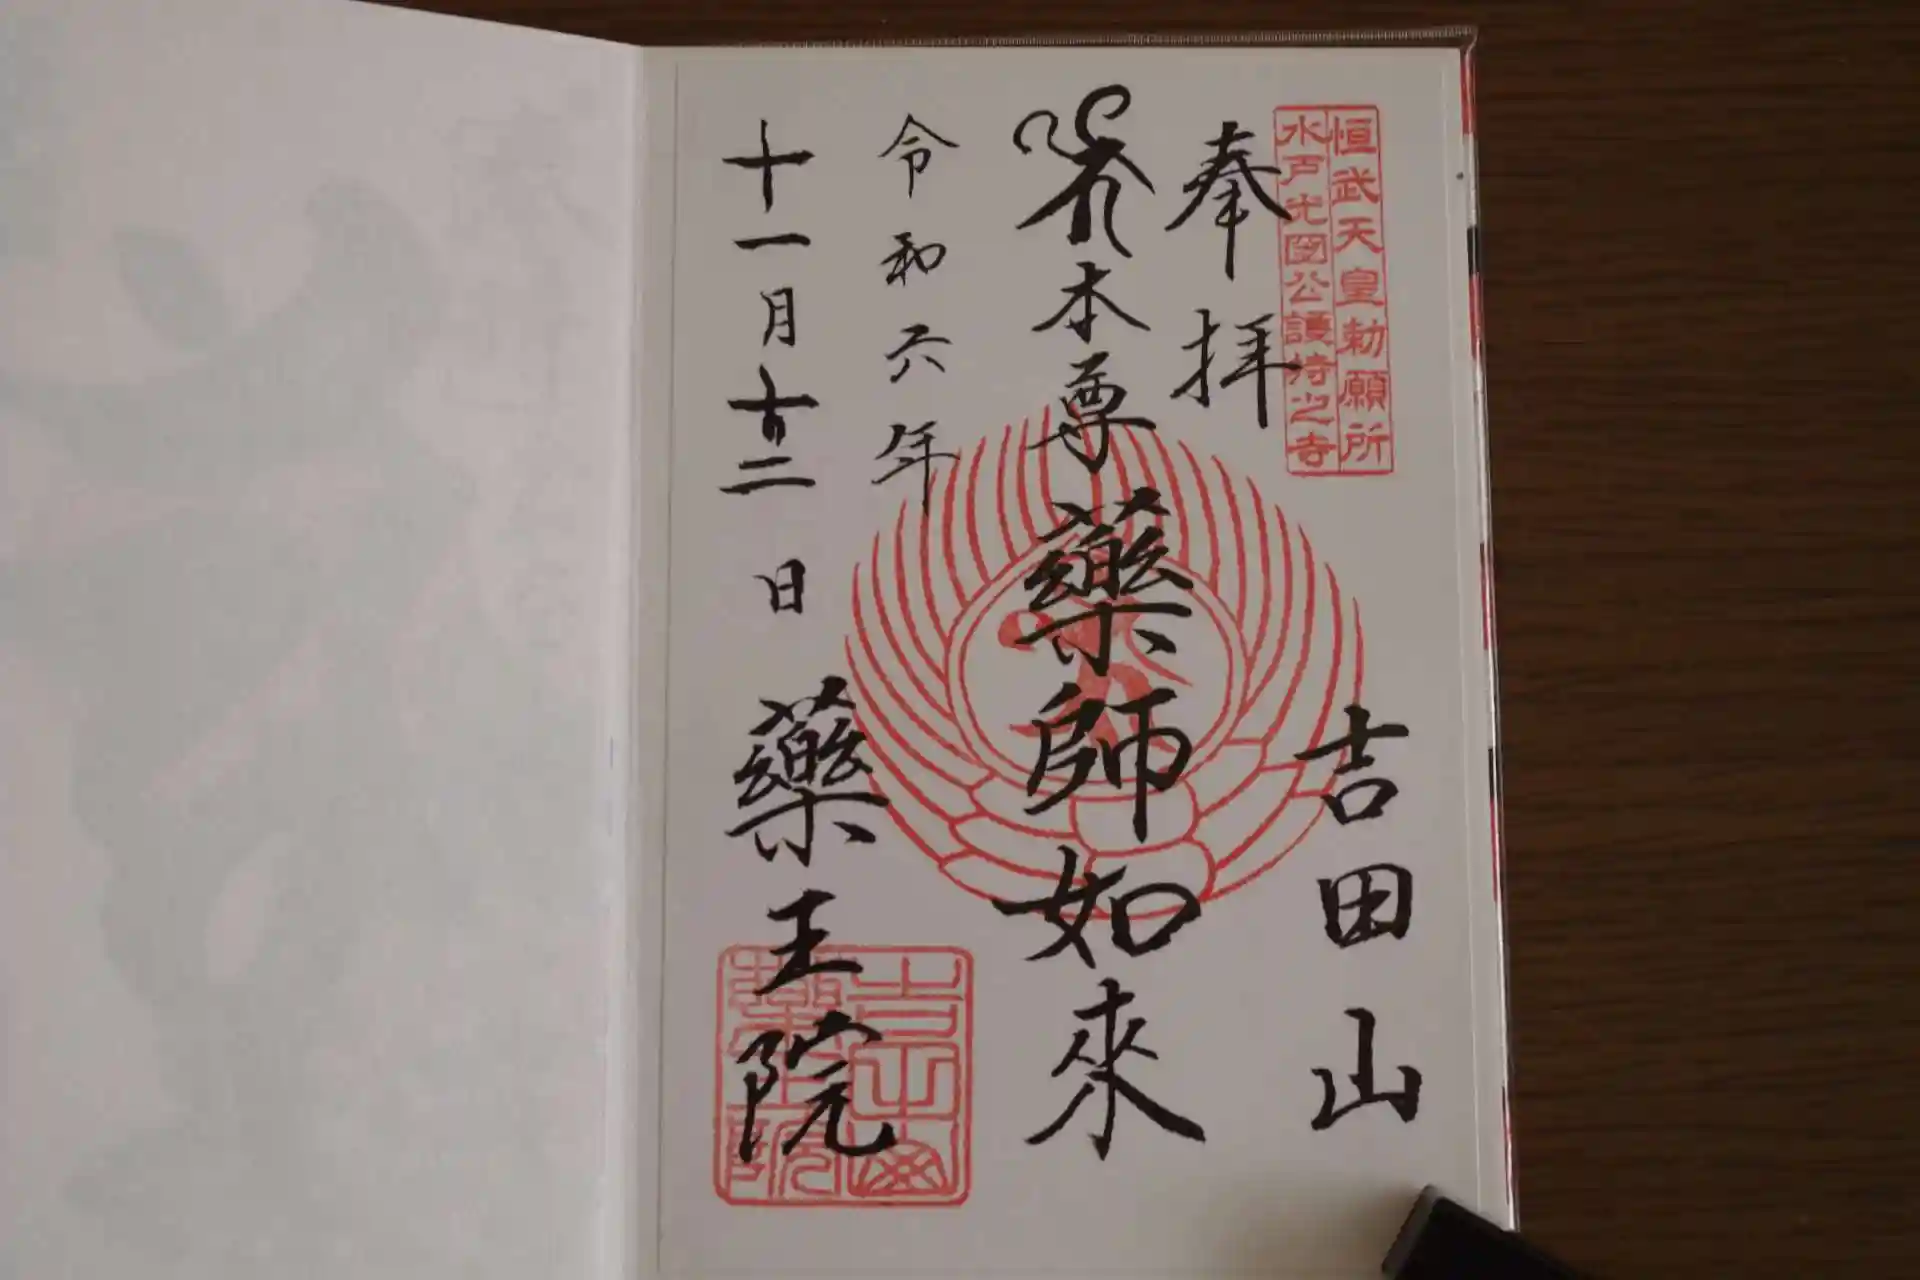 恒武天皇勅願所
水戸光圀公護持之寺
奉拝
吉田山
本尊藥師如來
令和六年
十一月廿二日
藥王院
藥王院